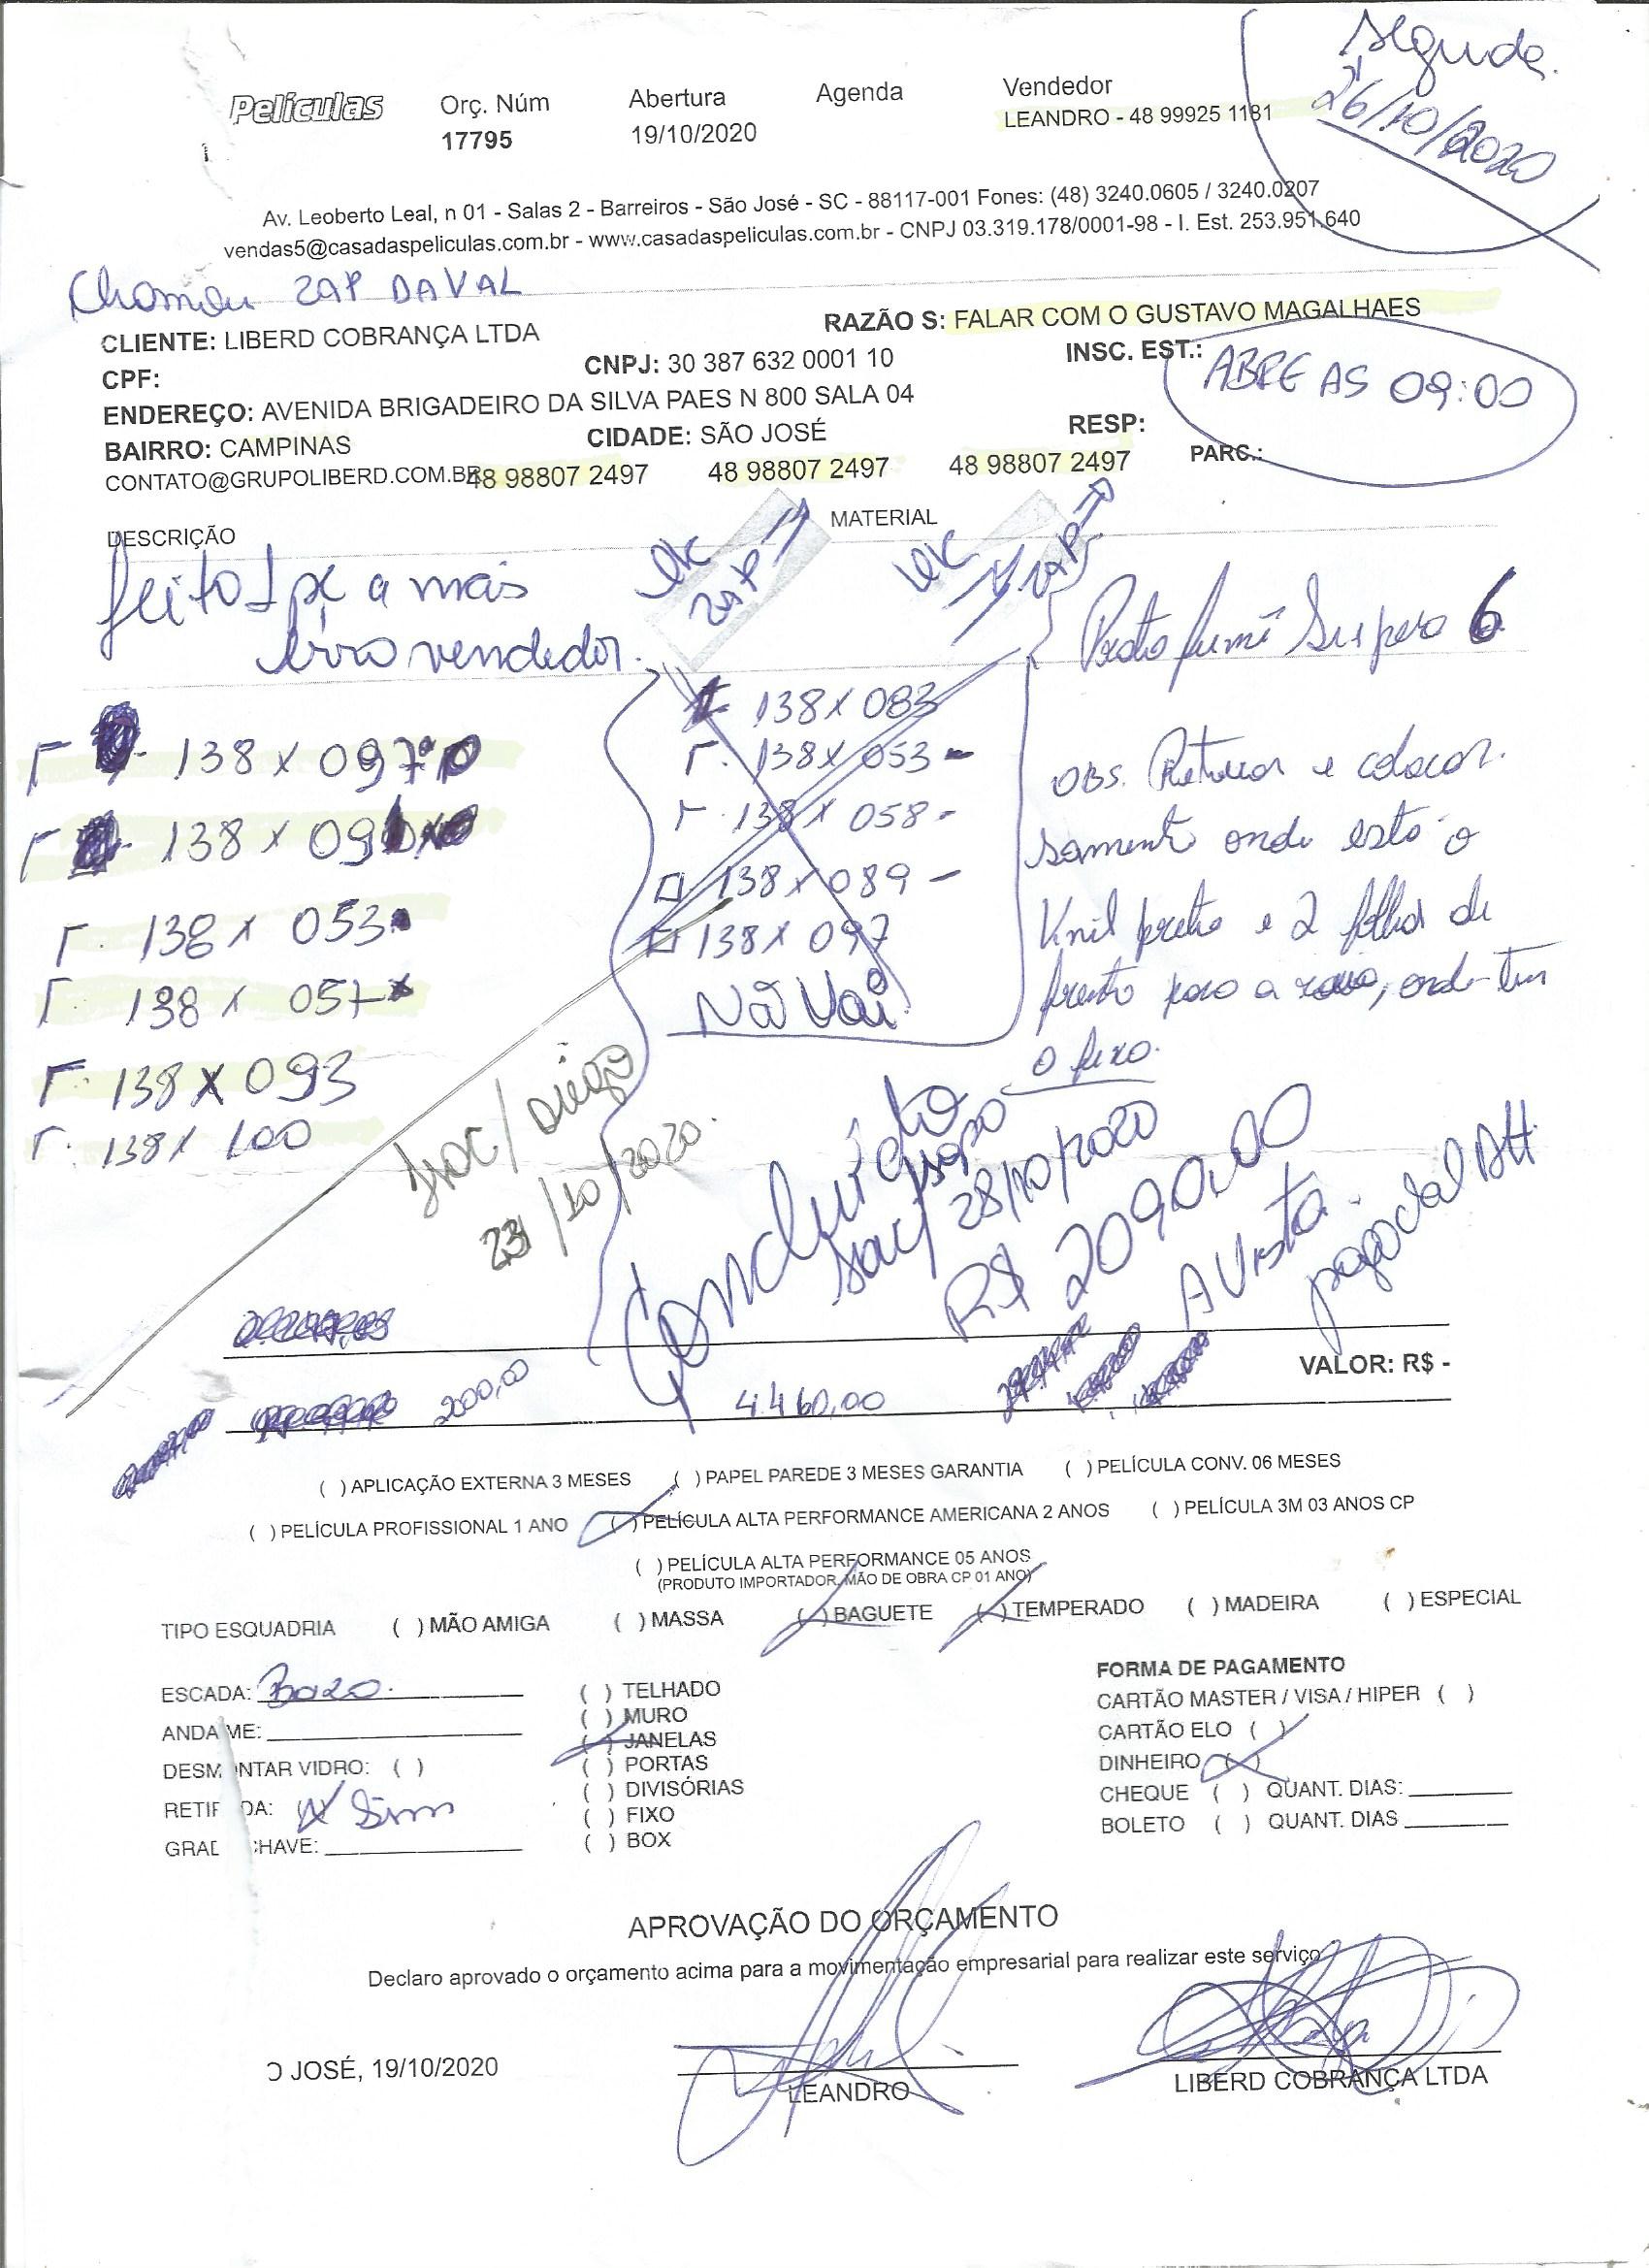 Segunda.
26/10/2020
Películas
Orç. Núm Abertura Agenda Vendedor
17795 19/10/2020 LEANDRO - 48 99925 1181
Av. Leoberto Leal, n 01 - Salas 2 - Barreiros - São José - SC - 88117-001 Fones: (48) 3240.0605 / 3240.0207
vendas5@casadaspeliculas.com.br - www.casadaspeliculas.com.br - CNPJ 03.319.178/0001-98 - I. Est. 253.951.640
ZAP DAVAL
CLIENTE: LIBERD COBRANÇA LTDA RAZÃO S: FALAR COM O GUSTAVO MAGALHAES
CPF: CNPJ: 30 387 632 0001 10 INSC. EST.:
ABRE AS 09:00
ENDEREÇO: AVENIDA BRIGADEIRO DA SILVA PAES N 800 SALA 04
BAIRRO: CAMPINAS CIDADE: SÃO JOSÉ RESP:
CONTATO@GRUPOLIBERD.COM.BR 48 98807 2497 48 98807 2497 48 98807 2497 PARC.:
DESCRIÇÃO MATERIAL
feito 1 a mais
erro vendedor.
ok ZAP
ok ZAP
Preto fumê Supero 6
138 x 097
138 x 09
138 x 053
138 x 057
138 x 093
138 x 100
138 x 083
138 x 053 -
138 x 058 -
138 x 089 -
138 x 097
Não Vai
OBS. Retirar e colocar
somente onde está o
Vinil preto e 2 folha de
frente para a rua, onde tem
o fixo.
Sac/Diego
23/10/2020.
Concluido
28/10/2020
R$ 2090,00
A Vista.
VALOR: R$ -
200,00
4.460,00
( ) APLICAÇÃO EXTERNA 3 MESES ( ) PAPEL PAREDE 3 MESES GARANTIA ( ) PELÍCULA CONV. 06 MESES
( ) PELÍCULA PROFISSIONAL 1 ANO ( ) PELÍCULA ALTA PERFORMANCE AMERICANA 2 ANOS ( ) PELÍCULA 3M 03 ANOS CP
( ) PELÍCULA ALTA PERFORMANCE 05 ANOS
(PRODUTO IMPORTADOR, MÃO DE OBRA CP 01 ANO)
TIPO ESQUADRIA ( ) MÃO AMIGA ( ) MASSA ( ) BAGUETE ( ) TEMPERADO ( ) MADEIRA ( ) ESPECIAL
ESCADA:
ANDA ME:
DESM NTAR VIDRO: ( )
RETIF DA: (X) Sim
GRAD CHAVE:
( ) TELHADO
( ) MURO
( ) JANELAS
( ) PORTAS
( ) DIVISÓRIAS
( ) FIXO
( ) BOX
FORMA DE PAGAMENTO
CARTÃO MASTER / VISA / HIPER ( )
CARTÃO ELO ( )
DINHEIRO ( )
CHEQUE ( ) QUANT. DIAS:
BOLETO ( ) QUANT. DIAS
APROVAÇÃO DO ORÇAMENTO
Declaro aprovado o orçamento acima para a movimentação empresarial para realizar este serviço
O JOSÉ, 19/10/2020
LEANDRO
LIBERD COBRANÇA LTDA